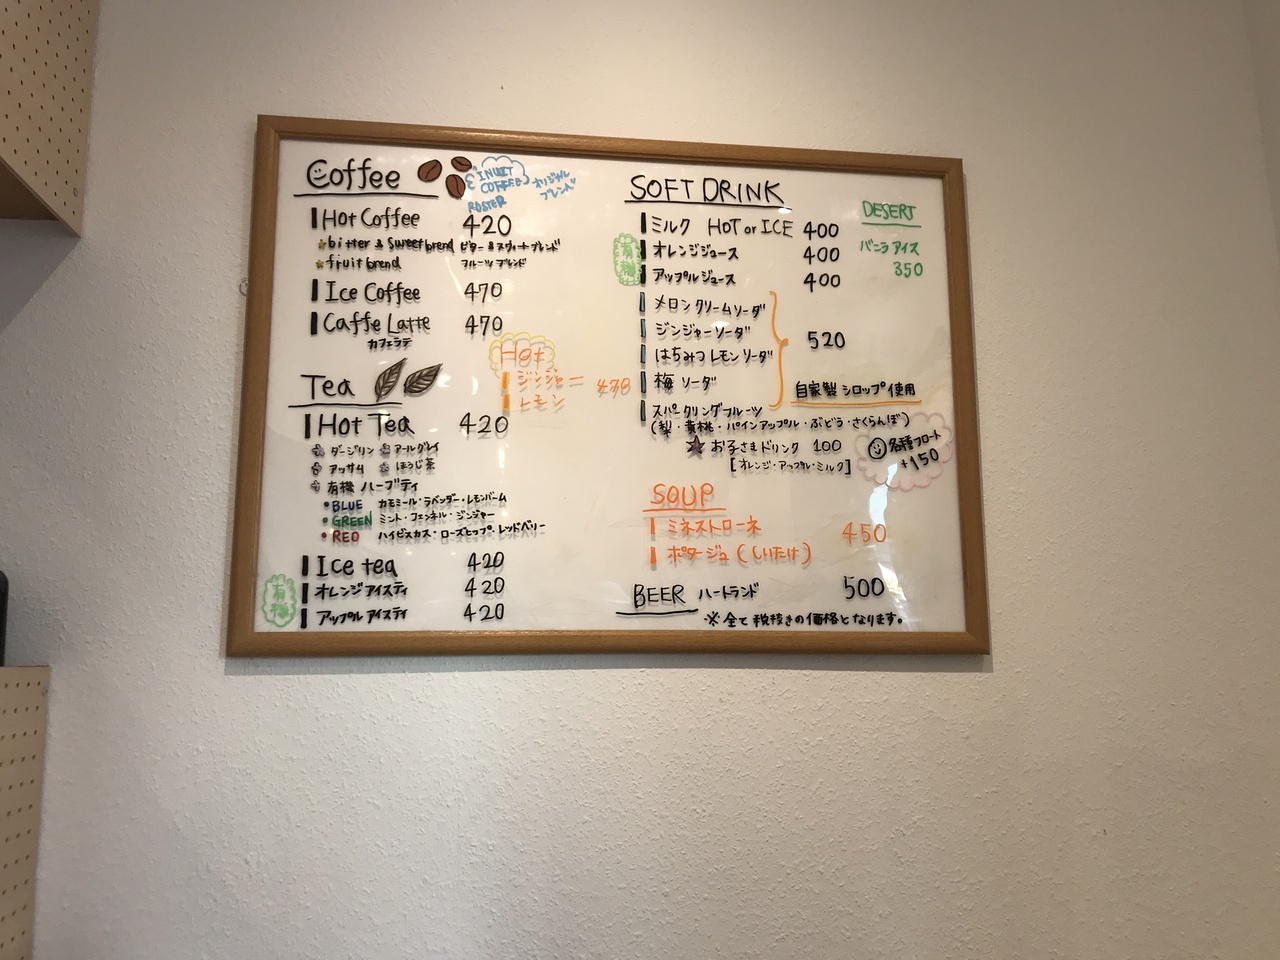 Coffee
INUIT
COFFEE
ROSTER
オリジナル
ブレンド
Hot Coffee 420
bitter & sweet brend ビター & スウィートブレンド
fruit brend フルーツブレンド
Ice Coffee 470
Caffe Latte 470
カフェラテ
Hot
ジンジャー
レモン
470
Tea
Hot Tea 420
ダージリン アールグレイ
アッサム ほうじ茶
有機 ハーブティ
BLUE カモミール・ラベンダー・レモンバーム
GREEN ミント・フェンネル・ジンジャー
RED ハイビスカス・ローズヒップ・レッドベリー
Ice tea 420
有機
オレンジアイスティ 420
アップルアイスティ 420
SOFT DRINK
ミルク HOT or ICE 400
有機
オレンジジュース 400
アップルジュース 400
メロンクリームソーダ
ジンジャーソーダ
はちみつレモンソーダ
梅ソーダ
520
自家製シロップ使用
スパークリングフルーツ
(梨・黄桃・パインアップル・ぶどう・さくらんぼ)
お子さまドリンク 100
[オレンジ・アップル・ミルク]
各種フロート
+150
DESERT
バニラアイス
350
SOUP
ミネストローネ 450
ポタージュ(しいたけ)
BEER ハートランド 500
※全て税抜きの価格となります。